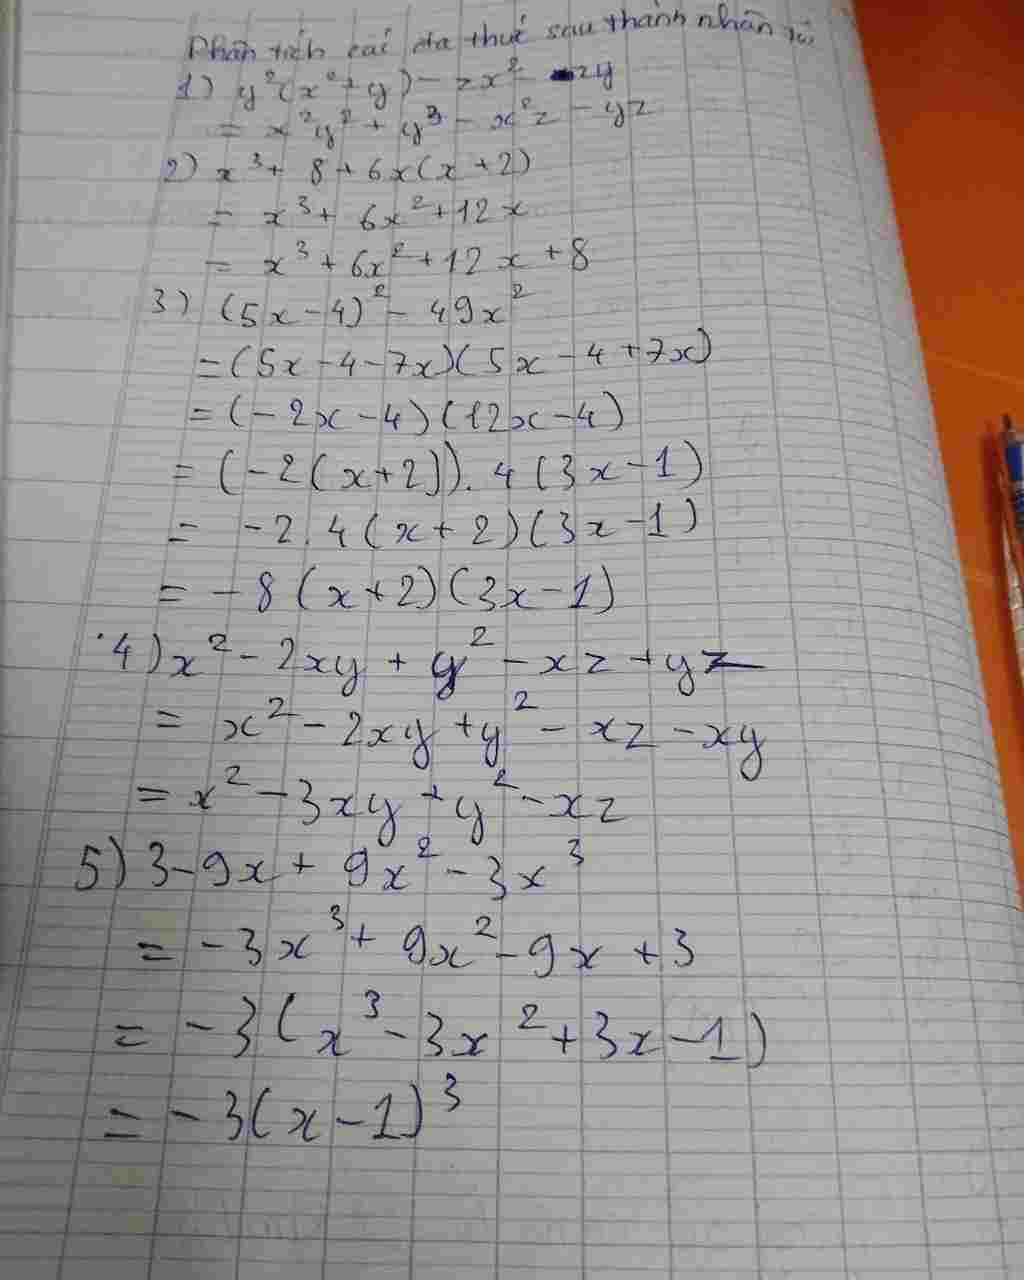 Phân tích các đa thức sau thành nhân tử
1) y²(x²+y) - zx² - zy
= x²y² + y³ - x²z - yz
2) x³ + 8 + 6x(x+2)
= x³ + 6x² + 12x
= x³ + 6x² + 12x + 8
3) (5x-4)² - 49x²
= (5x-4-7x)(5x-4+7x)
= (-2x-4)(12x-4)
= (-2(x+2)).4(3x-1)
= -2.4(x+2)(3x-1)
= -8(x+2)(3x-1)
4) x² - 2xy + y² - xz + yz
= x² - 2xy + y² - xz - xy
= x² - 3xy + y² - xz
5) 3-9x + 9x² - 3x³
= -3x³ + 9x² - 9x + 3
= -3(x³ - 3x² + 3x - 1)
= -3(x-1)³